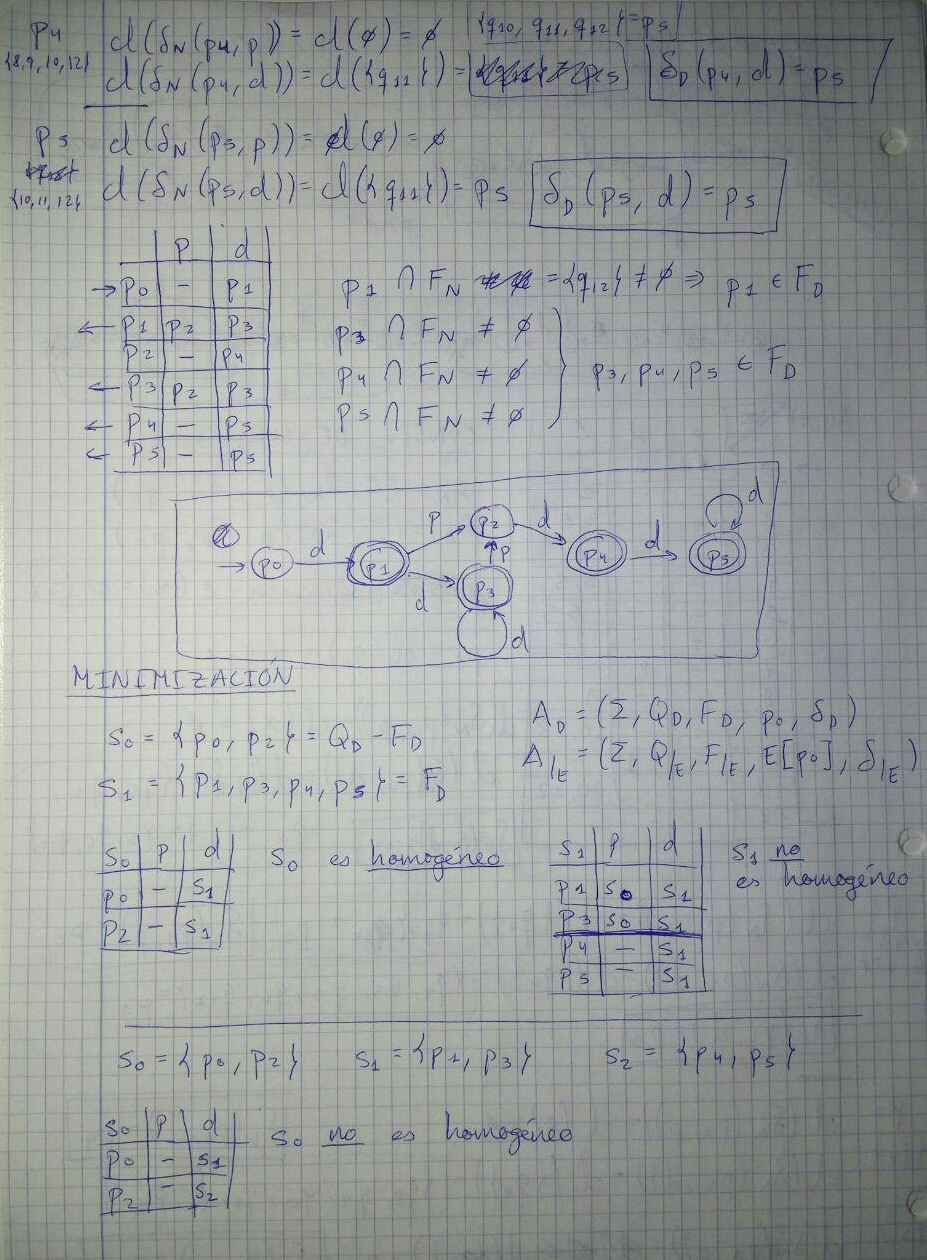 p4 d(δN(p4,p)) = d(∅) = ∅ {q10, q11, q12} = p5
{8,9,10,12} d(δN(p4,d)) = d({q11}) = p5 δD(p4,d) = p5
p5 d(δN(p5,p)) = d(∅) = ∅
{10,11,12} d(δN(p5,d)) = d({q11}) = p5 δD(p5,d) = p5
p d
→ p0 – p1
← p1 p2 p3
p2 – p4
← p3 p2 p3
← p4 – p5
← p5 – p5
p1 ∩ FN = {q12} ≠ ∅ ⇒ p1 ∈ FD
p3 ∩ FN ≠ ∅
p4 ∩ FN ≠ ∅ } p3, p4, p5 ∈ FD
p5 ∩ FN ≠ ∅
→ p0 d p1 p p2 d p4 d p5 d
d p3 p d
MINIMIZACIÓN
S0 = {p0, p2} = QD - FD
S1 = {p1, p3, p4, p5} = FD
AD = (Σ, QD, FD, p0, δD)
A/E = (Σ, Q/E, F/E, E[p0], δ/E)
S0 p d
p0 – S1
p2 – S1
S0 es homogéneo
S1 p d
p1 S0 S1
p3 S0 S1
p4 – S1
p5 – S1
S1 no
es homogéneo
S0 = {p0, p2} S1 = {p1, p3} S2 = {p4, p5}
S0 p d
p0 – S1
p2 – S2
S0 no es homogéneo